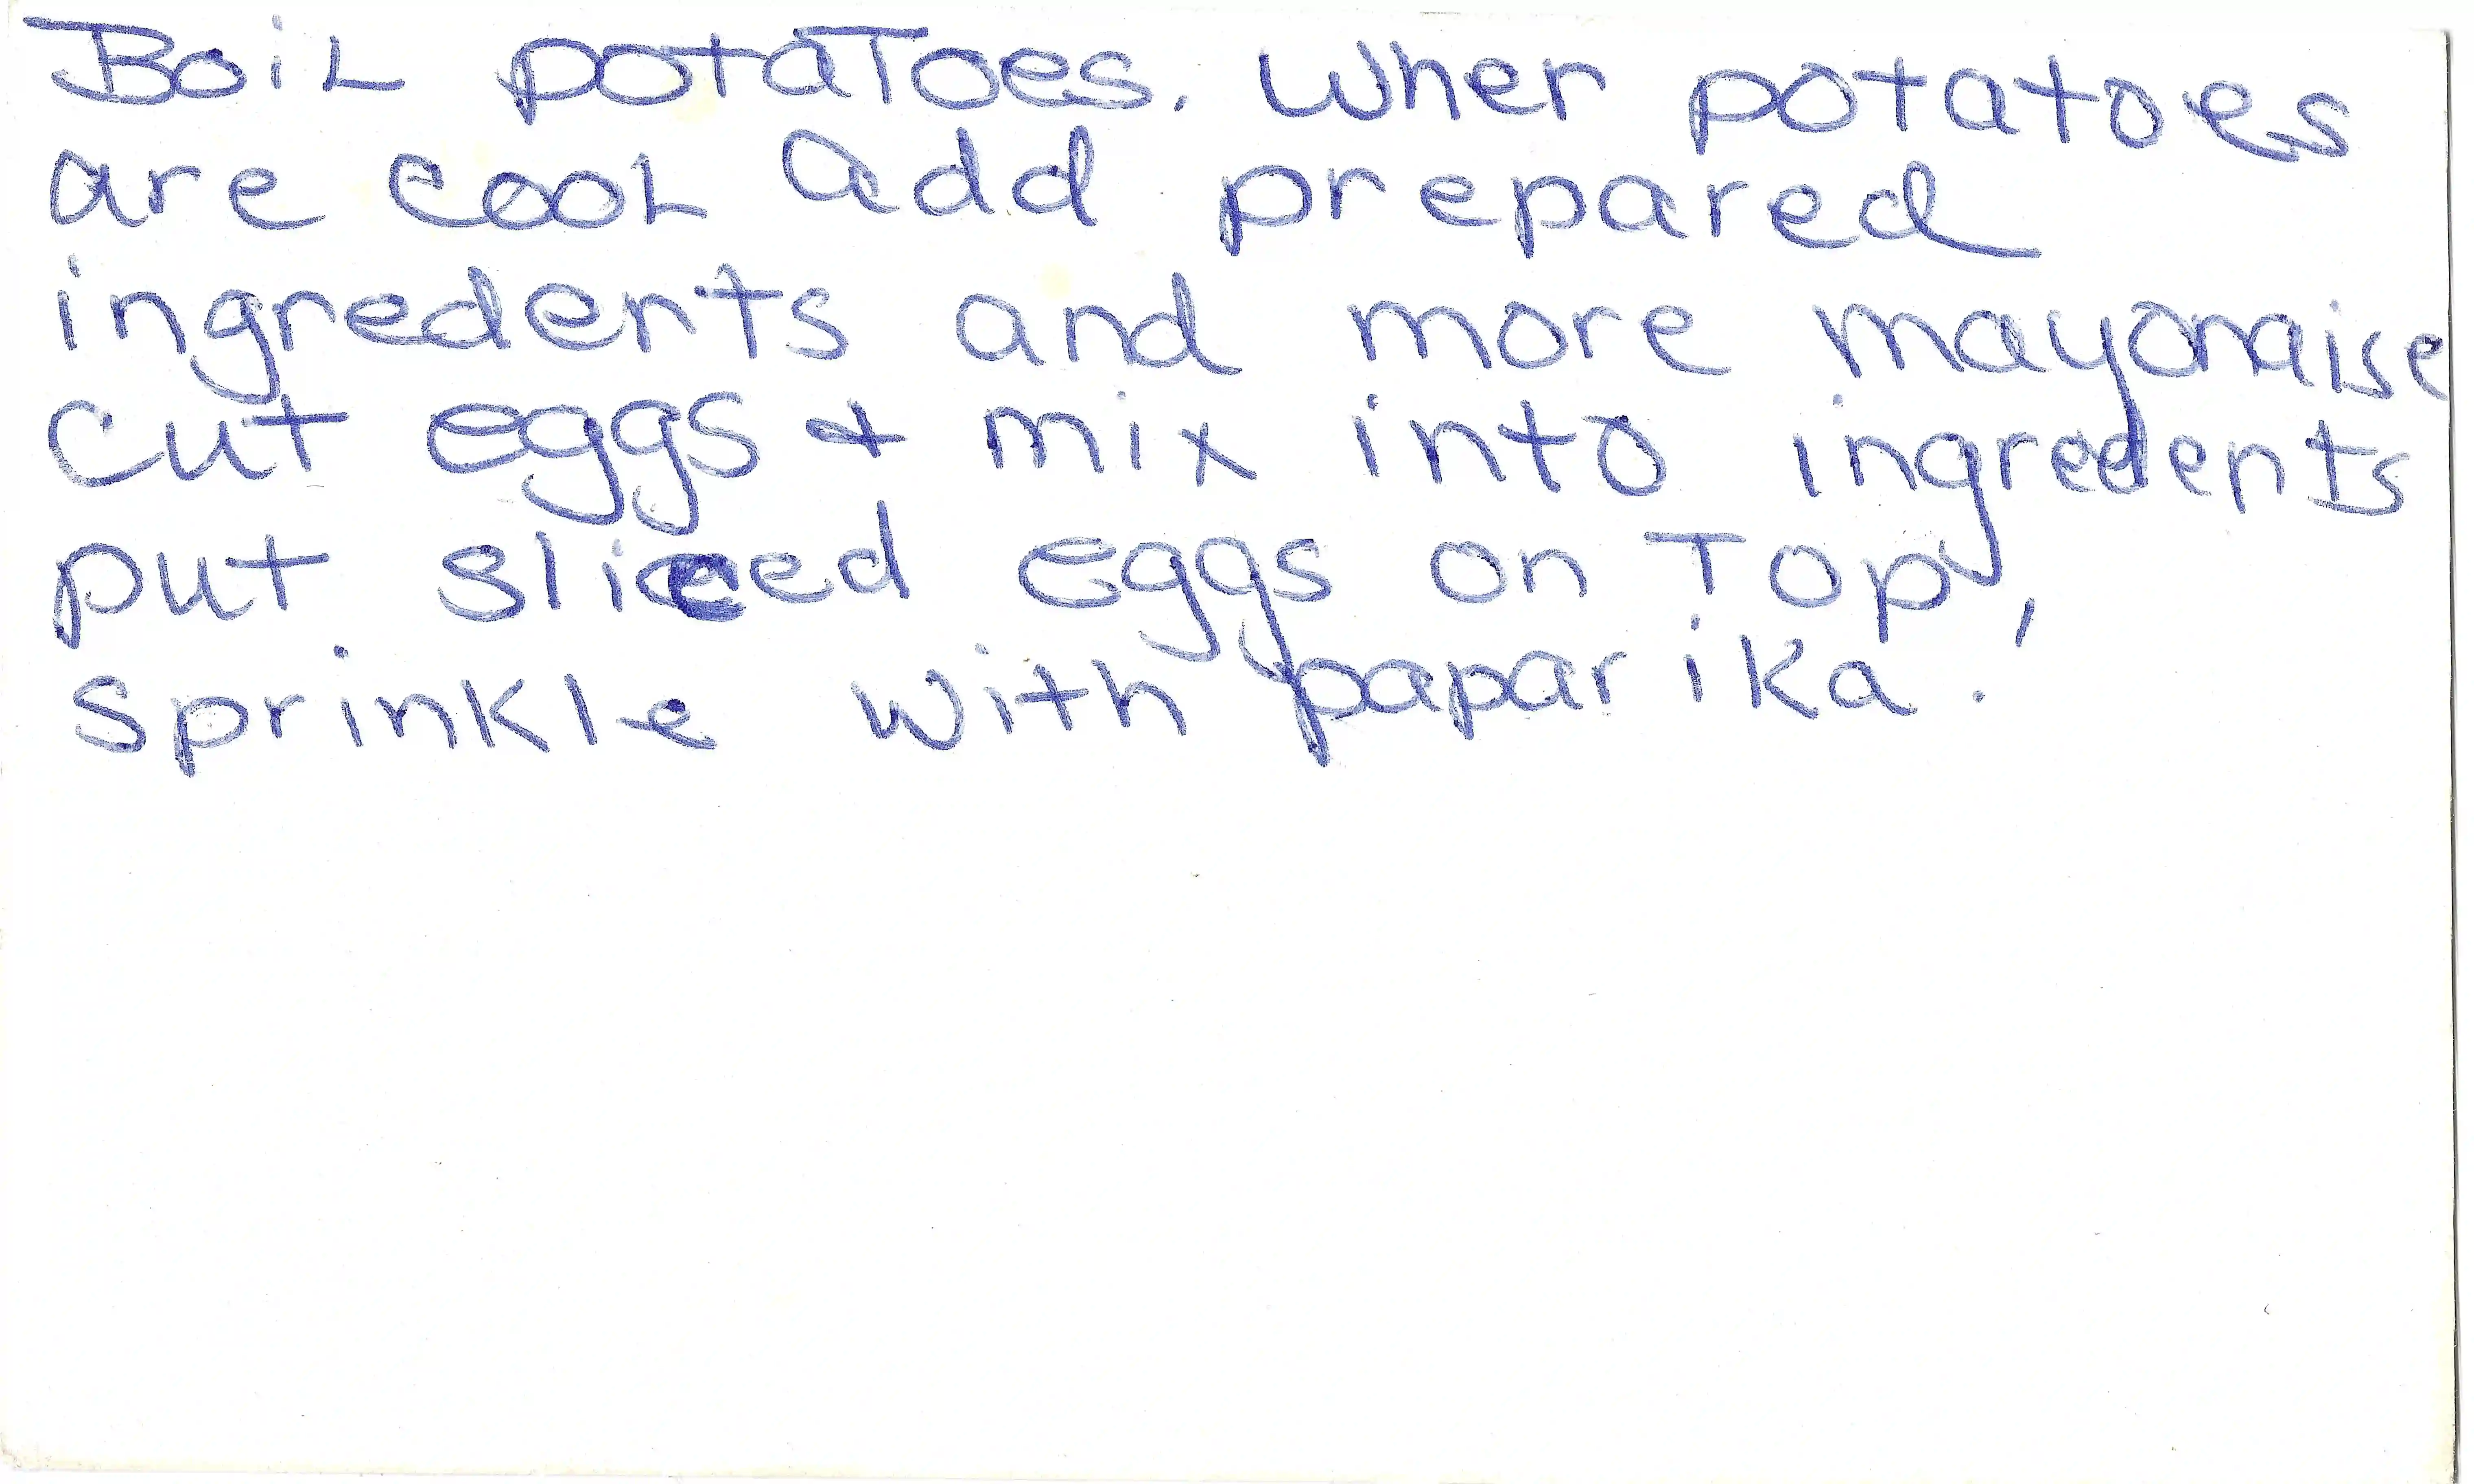 Boil potatoes. When potatoes
are cool add prepared
ingredents and more mayonaise
cut eggs & mix into ingredents
put sliced eggs on top,
sprinkle with paparika.